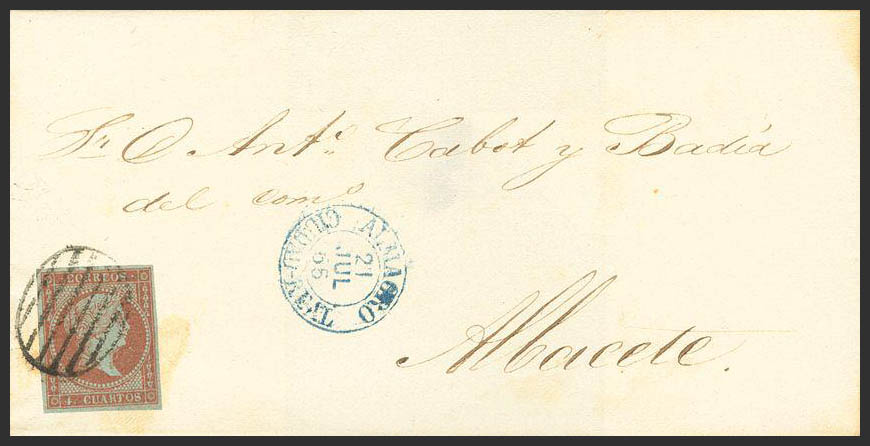 Sr. D. Antº. Cabot y Badía
del comº
ALMAGRO
CIUDAD-REAL
21
JUL
55
CORREOS
4 CUARTOS
Albacete